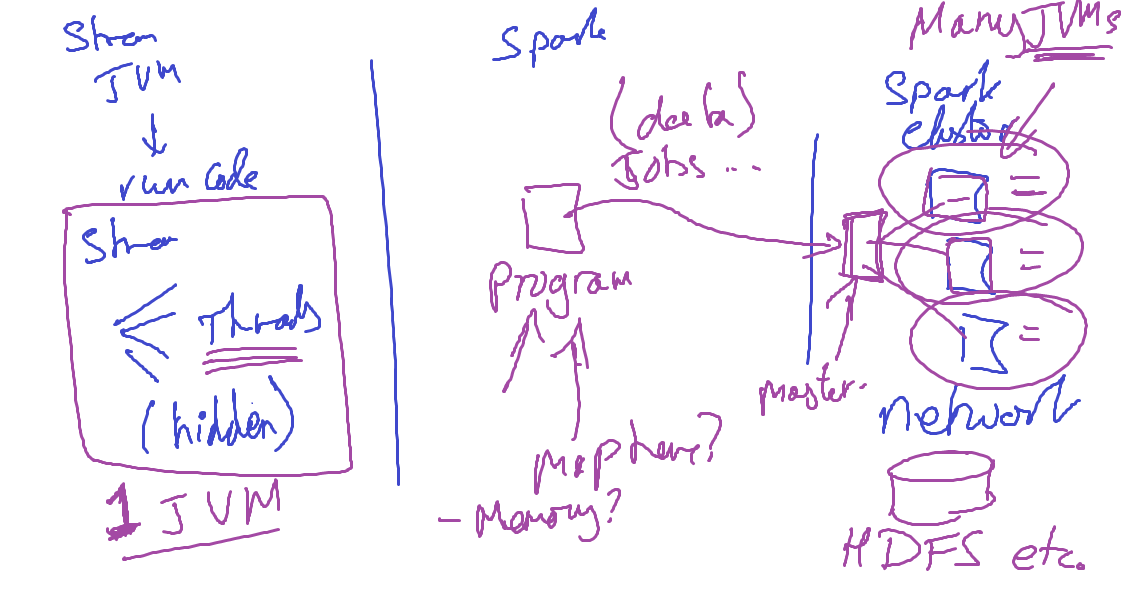 Stream
JVM
run code
Stream
Threads
(hidden)
1 JVM
Spark
(data)
Jobs ...
Program
Map here?
- Memory?
Many JVMs
Spark
cluster
Master.
network
HDFS etc.